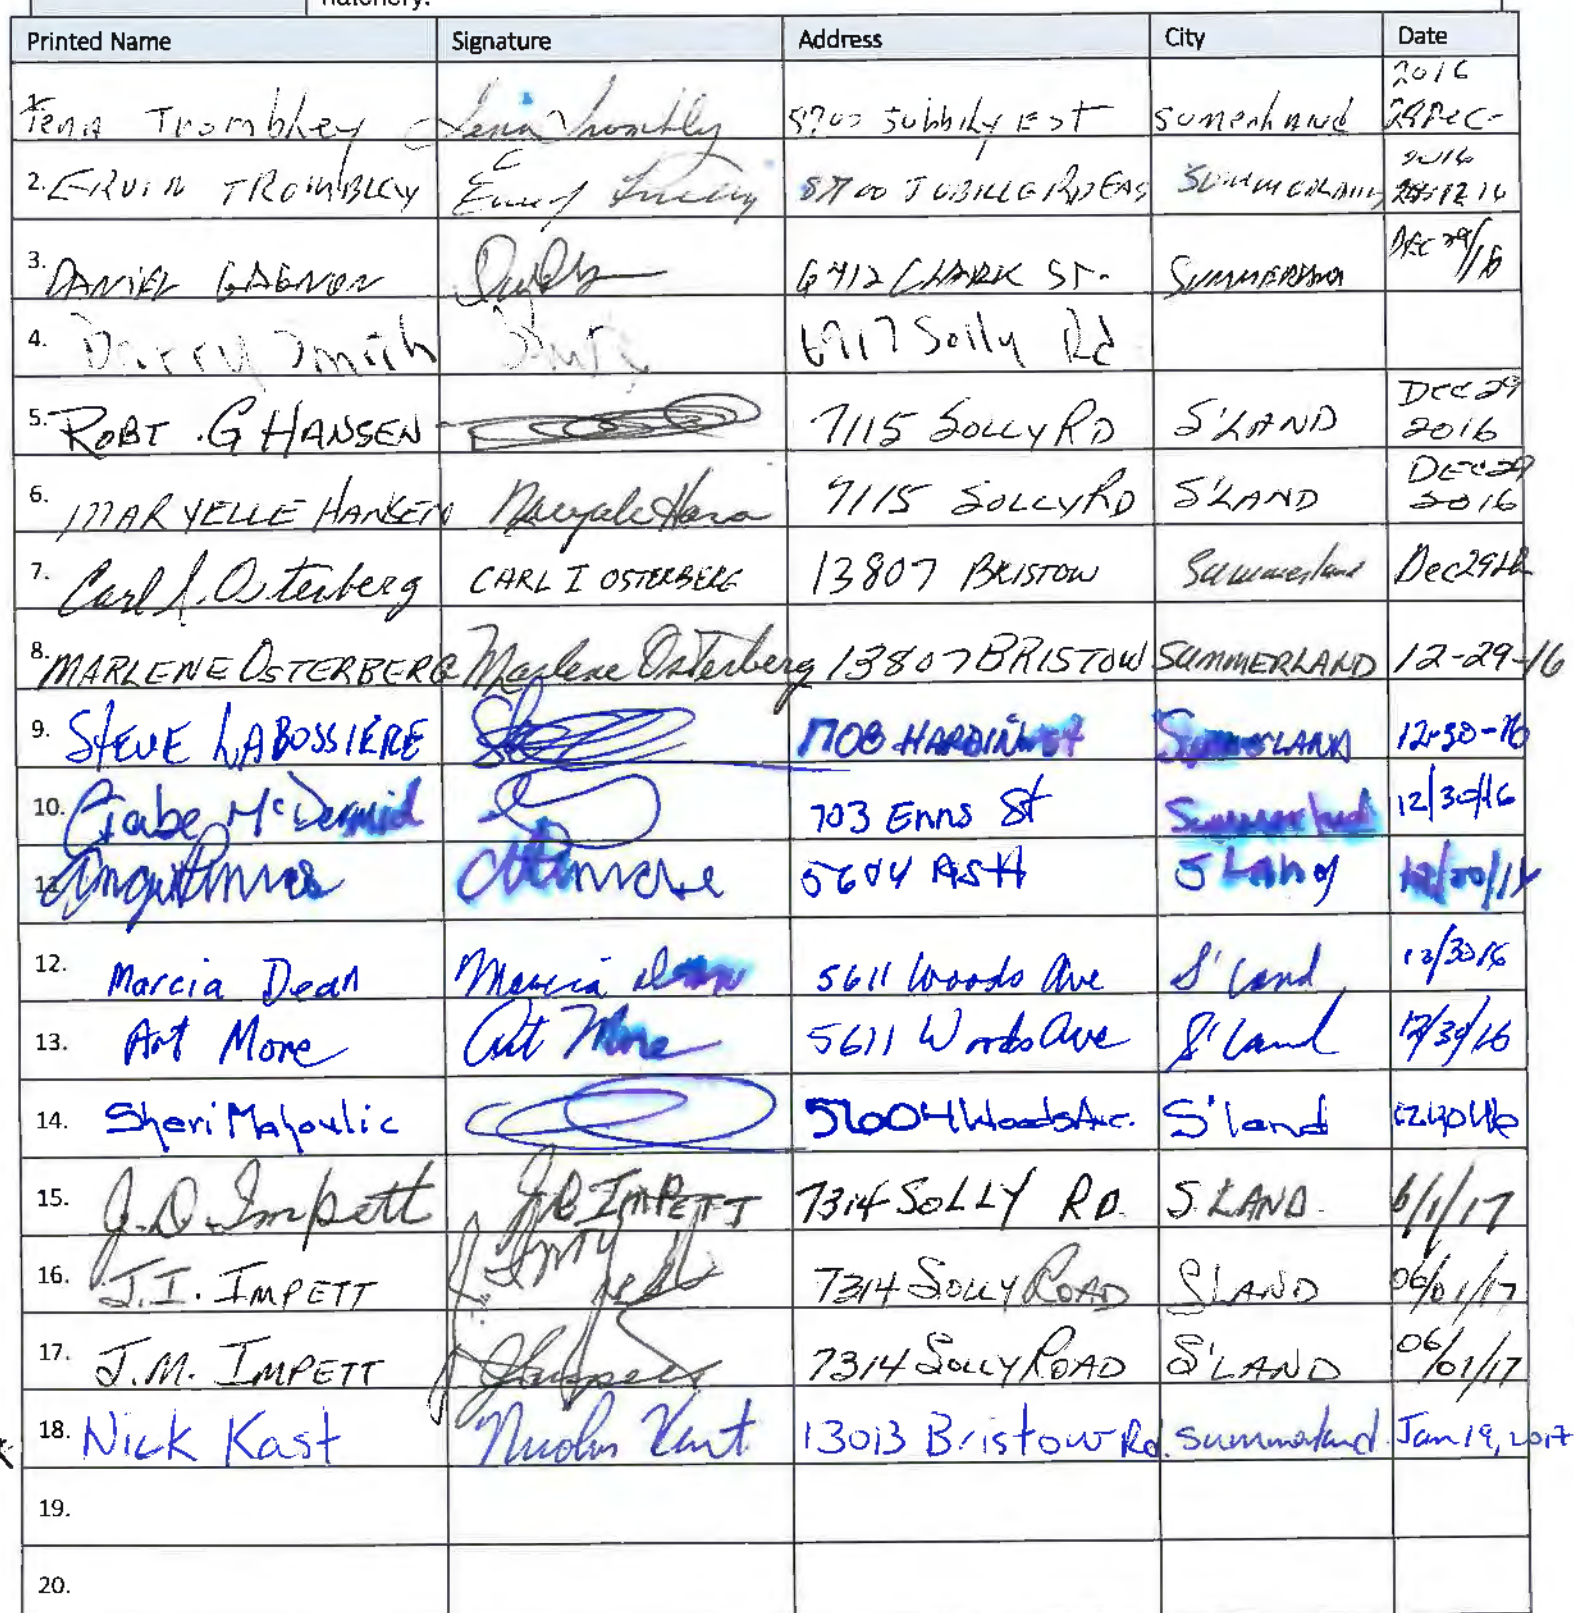 hatchery.
Printed Name Signature Address City Date
1. Tena Trombley Tena Trombley 5700 East 2016 29 Dec-
2. ERVIN TROMBLEY 5700 JUBILLE RD EAS SUMMERLAND 2016
3. DANIEL GAGNON 6712 CLARK ST. SUMMERLAND DEC 29/16
4. Darry Smith 6917 Solly Rd
5. ROBT. G HANSEN 7115 SOLLY RD S'LAND Dec 29 2016
6. MARYELLE HANSEN 7115 SOLLY RD S'LAND DEC 29 2016
7. Carl I. Osterberg CARL I OSTERBERG 13807 BRISTOW Summerland Dec 29th
8. MARLENE OSTERBERG Marlene Osterberg 13807 BRISTOW SUMMERLAND 12-29-16
9. STEVE LABOSSIÈRE 1708 SUMMERLAND 12-30-16
10. Gabe McDermid 703 Enns St Summerland 12/30/16
11. 5604 ASH S Land 12/30/16
12. Marcia Dean Marcia Dean 5611 Woods Ave S'land 12/30/16
13. Art More Art More 5611 Woods Ave S'land 12/30/16
14. Sheri Mahoulic 5604 Woods Ave. S'land 12/30/16
15. J.D. Impett J.D. IMPETT 7314 SOLLY RD. S.LAND. 6/1/17
16. J.I. IMPETT 7314 SOLLY ROAD S'LAND 06/01/17
17. J.M. IMPETT 7314 SOLLY ROAD S'LAND 06/01/17
18. Nick Kast Nicolas Kast 13013 Bristow Rd. Summerland. Jan 19, 2017
19.
20.